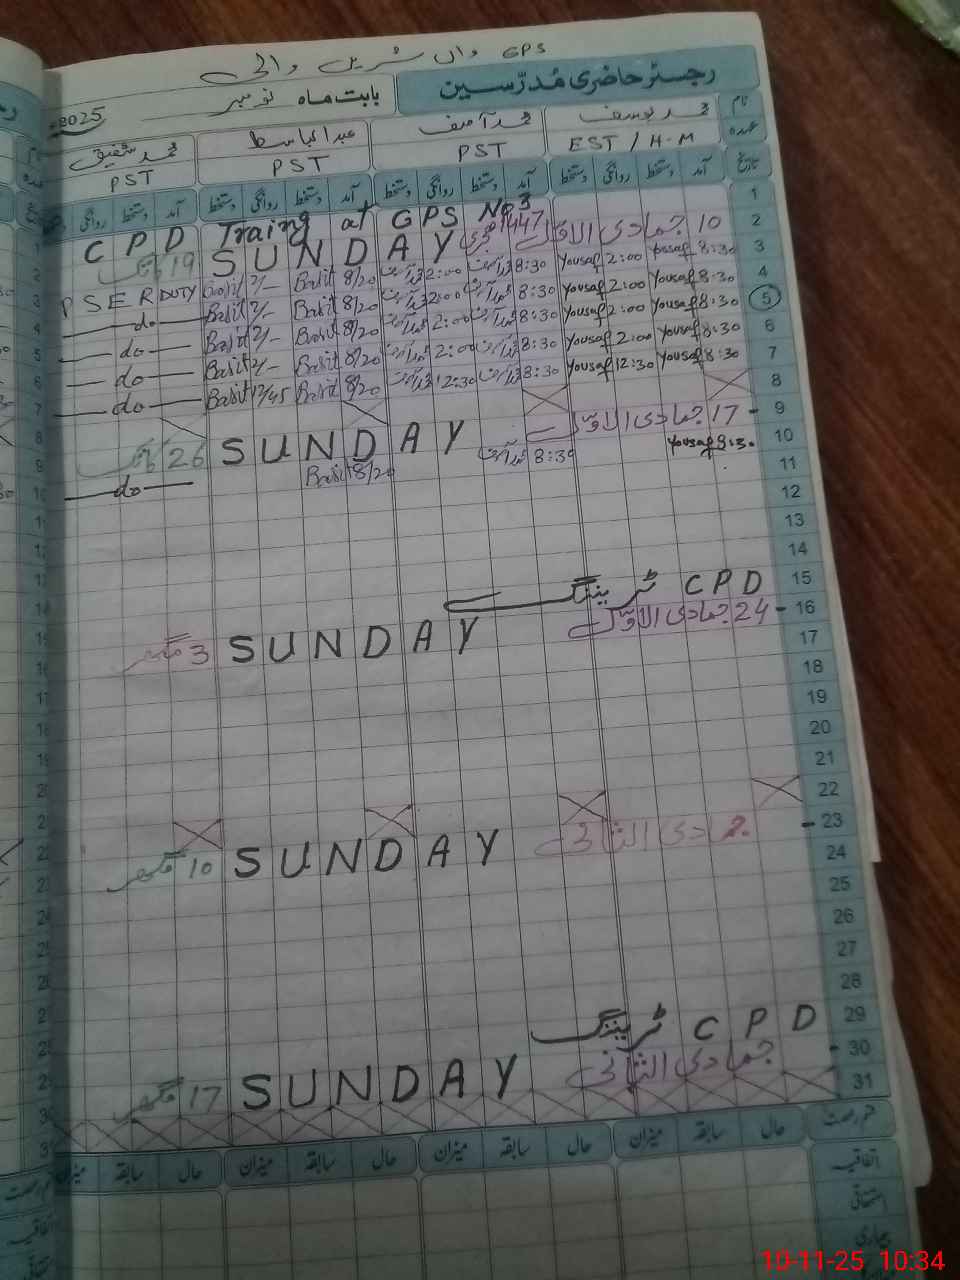 GPS واں شریں والی
رجسٹر حاضری مُدرّسین
بابت ماہ نومبر 2025
نام محمد یوسف محمد آصف عبدالباسط محمد شفیق
عہدہ EST / H-M PST PST PST
تاریخ آمد دستخط روانگی دستخط آمد دستخط روانگی دستخط آمد دستخط روانگی دستخط آمد دستخط روانگی
1 CPD Traing at GPS No3
2 10 جمادی الاوّل 1447 ہجری SUNDAY 19
3 8:30 Yousaf 2:00 Yousaf 8:30 2:00 8/20 Basit 2/- Basit PSER DUTY
4 8:30 Yousaf 2:00 Yousaf 8:30 2:00 8/20 Basit 2/- Basit do
5 8:30 Yousaf 2:00 Yousaf 8:30 2:00 8/20 Basit 2/- Basit do
6 8:30 Yousaf 2:00 Yousaf 8:30 2:00 8/20 Basit 2/- Basit do
7 8:30 Yousaf 12:30 Yousaf 8:30 12:30 8/20 Basit 12/45 Basit do
8
9 17 جمادی الاوّل SUNDAY 26
10 8:30 Yousaf 8:30 8/20 Basit do
11
12
13
14
15 CPD ٹریننگ
16 24 جمادی الاوّل SUNDAY 3 مگھر
17
18
19
20
21
22
23 جمادی الثانی SUNDAY 10 مگھر
24
25
26
27
28
29 CPD ٹریننگ
30 جمادی الثانی SUNDAY 17 مگھر
31
قسم رخصت حال سابقہ میزان حال سابقہ میزان حال سابقہ میزان حال سابقہ میزان
اتفاقیہ
استحقاقی
بیماری
10-11-25 10:34